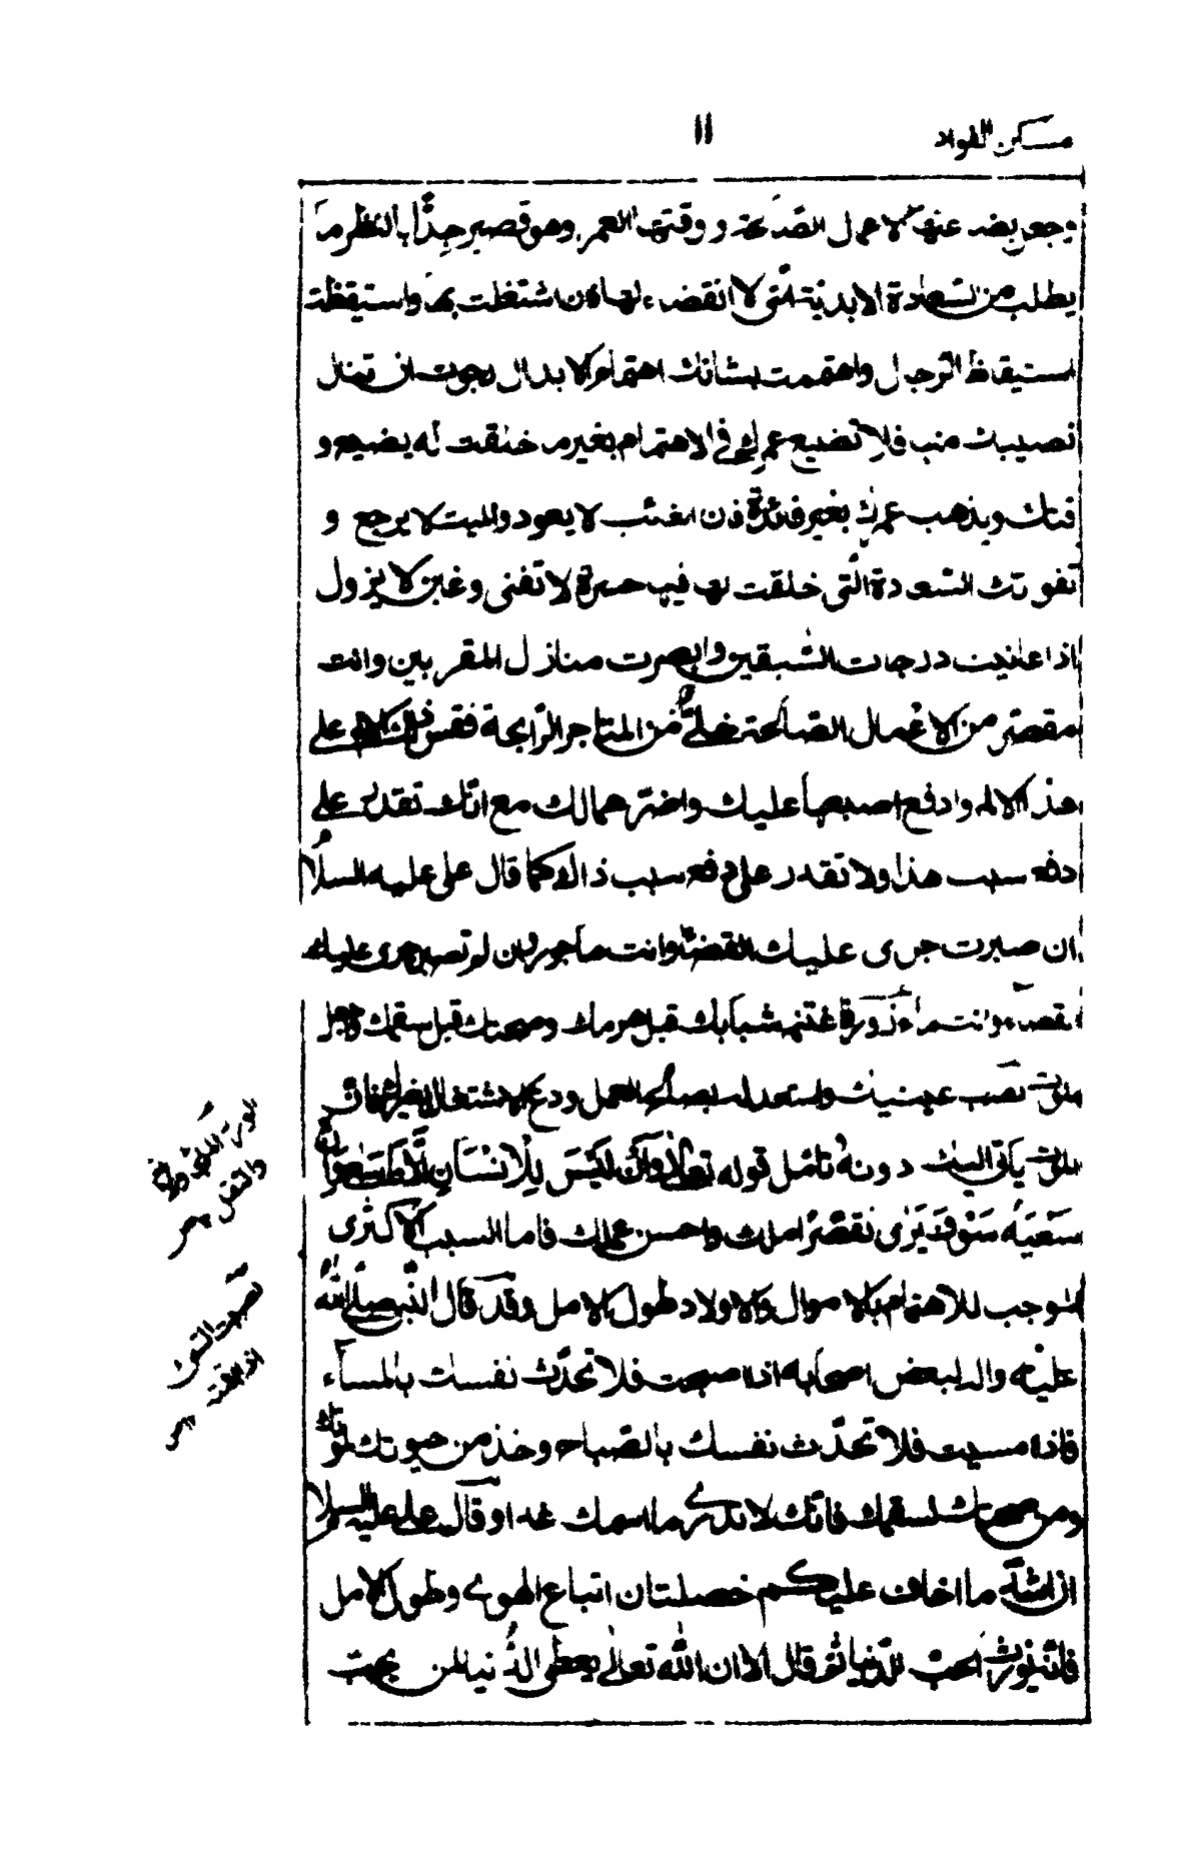 مسكن الفواد
١١
وجعل بضاعتها الاعمال الصّالحة ووقتها العمر وهو قصير جدًّا بالنظر ما
يطلب من السّعادة الابديّة الّتى لا انقضاء لها فان اشتغلت بها واستيقظت
استيقاظ الرّجال واهتممت بشانك اهتمام الابدال رجوت ان تنال
نصيبك منها فلا تضيع عمرك فى الاهتمام بغير ما خلقت له يضيع و
فتك ويذهب عمرك بغير فائدة فان الغائب لا يعود والميت لا يرجع و
تفوتك السّعادة الّتى خلقت لها فيها حسرة لا تفنى وغبن لا يزول
اذا عاينت درجات السّابقين وابصرت منازل المقربين وانت
مقصّر من الاعمال الصّالحة خلىّ من المتاجر الرّابحة فقس ذلك الالم على
هذا الالم وادفع اصعبها عليك واضرّهما لك مع انّك تقدر على
دفع سبب هذا ولا تقدر على دفع سبب ذاك كما قال على عليه السلام
ان صبرت جرى عليك القضاء وانت ماجور وان لم تصبر جرى عليك
القضاء وانت مأزور فاغتنم شبابك قبل هرمك وصحتك قبل سقمك واجعل
الموت نصب عينيك واستعد له بصالح العمل ودع الاشتغال بغيرك فان
الموت ياتى اليك دونه وتامّل قوله تعالى وَاَنْ لَيْسَ لِلْاِنْسَانِ اِلَّا مَا سَعٰى وَاَنَّ
سَعْيَهُ سَوْفَ يُرٰى فقصّر املك واحسن عملك فاما السبب الاكثرى
الموجب للاهتمام بالاموال والاولاد طول الامل وقد قال النّبى صلّى اللّه
عليه واله لبعض اصحابه اذا اصبحت فلا تحدّث نفسك بالمساء
فاذا امسيت فلا تحدّث نفسك بالصّباح وخذ من حيوتك لموتك
ومن صحتك لسقمك فانّك لا تدرى ما اسمك غدا وقال على عليه السلام
ان اشدّ ما اخاف عليكم خصلتان اتباع الهوى وطول الامل
فانّه يورث الحبّ للدّنيا ثم قال الا ان اللّه تعالى يعطى الدّنيا لمن يحبّ